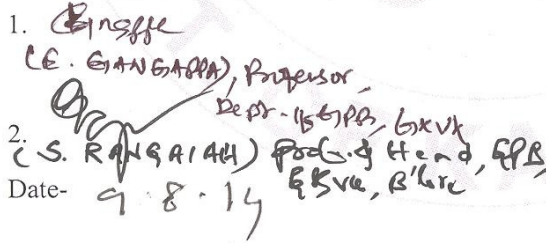 1.
(E. GANGAPPA), Professor,
Dept. of GPB, GKVK
2.
(S. RANGAIAH) Prof. & Head, GPB,
GKVK, B'lore
Date- 9.8.14